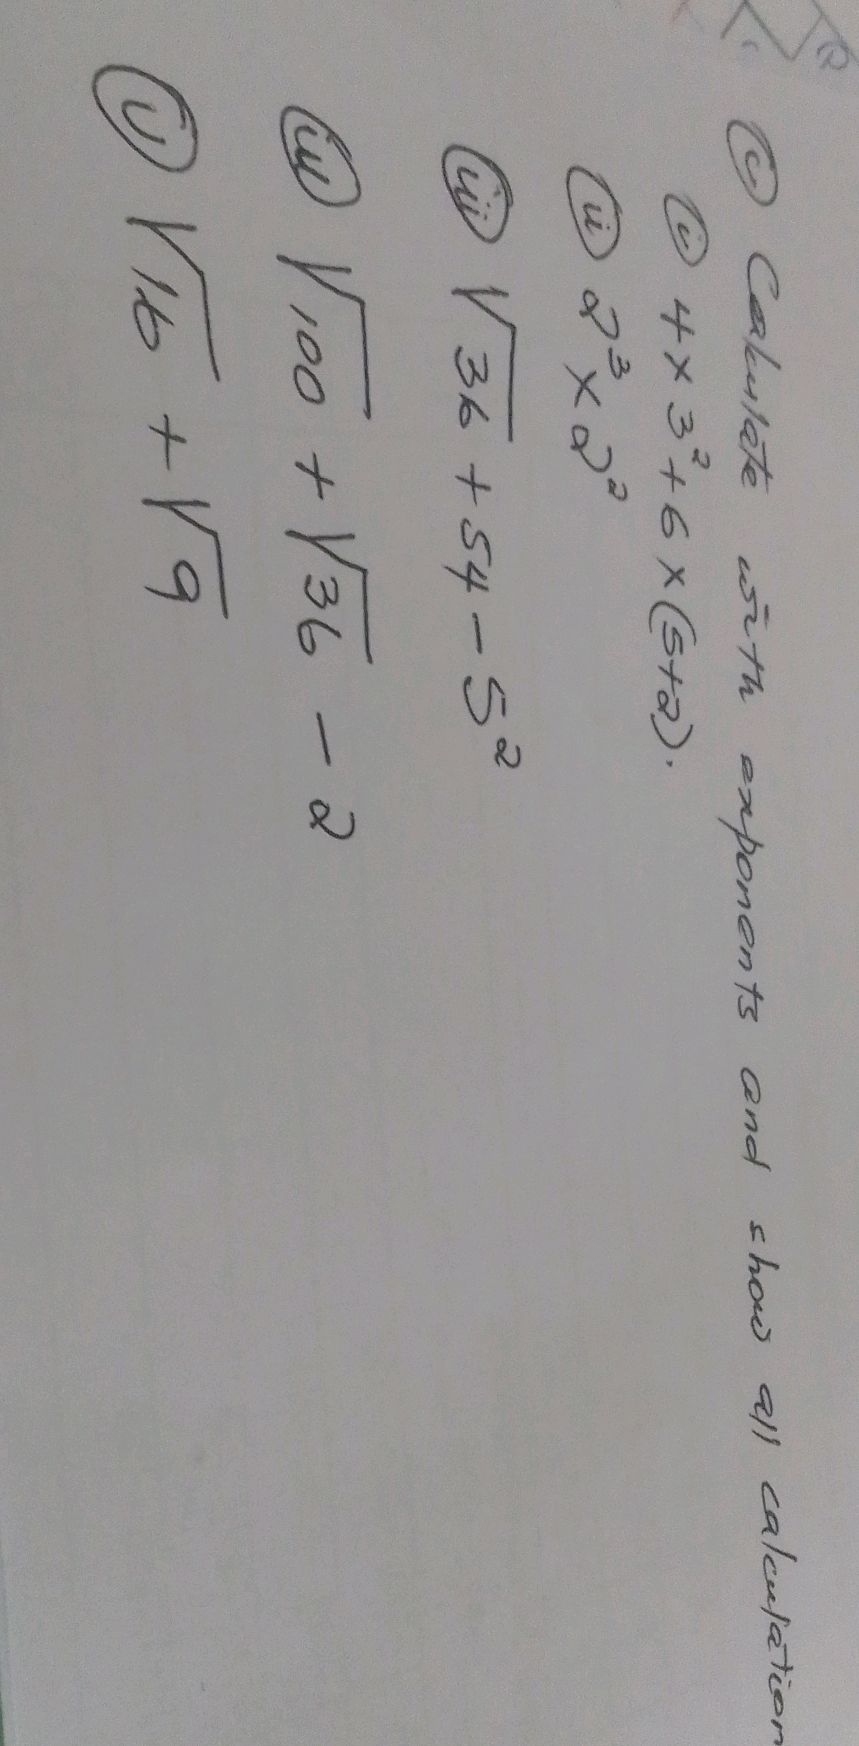 c Calculate with exponents and show all calculation
i 4 × 3² + 6 × (5+2).
ii 2³ × 2²
iii √36 + 54 - 5²
iv √100 + √36 - 2
v √16 + √9